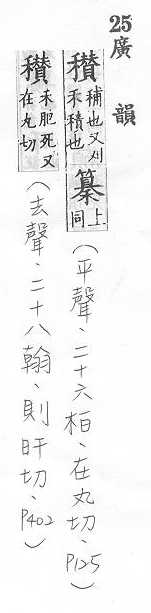 25廣韻
穳 穳補也又刈禾積也 䉵上同(平聲、二十六桓、在丸切、P125)
穳 禾肥死又在丸切(去聲、二十八翰、則旰切、P402)